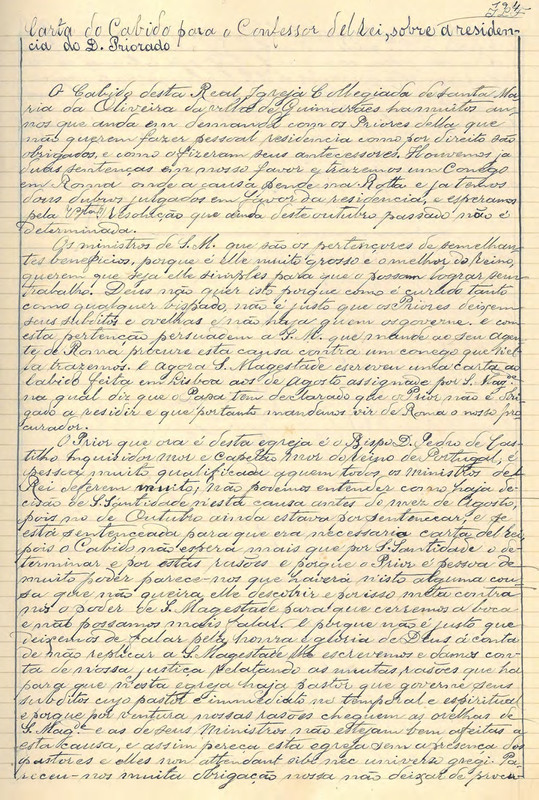 724
Carta do Cabido para o Confessor del Rei, sobre a residen-
cia do D. Priorado
O Cabido desta Real Igreja Collegiada de Santa Ma-
ria da Oliveira da villa de Guimarães ha muitos an-
nos que anda em demanda com os Priores della que
não querem fazer pessoal residencia como por direito são
obrigados, e como o fizeram seus antecessores. Houvemos ja
duas sentenças em nosso favor e trazemos um Conego
em Roma onde a causa pende na Rotta e ja temos
dous dubios julgados em favor da residencia, e esperamos
pela resolução que ainda deste outubro passado não é
determinada.
Os ministros de S. M. que são os pertençores de semelhan-
tes beneficios, porque é elle muito grosso e o melhor do reino,
querem que seja elle simples para que o possam lograr sem
trabalho. Deus não quer isto porque como é curado tanto
como qualquer bispado, não é justo que os Priores deixem
seus subditos e ovelhas e não haja quem os governe. e com
esta pertenção persuadem a S. M. que mande ao seu Agen-
te de Roma procure esta causa contra um conego que nel-
la trazemos. E agora S. Magestade escreveu uma carta ao
Cabido feita em Lisboa aos de Agosto assignada por S. Mag.de
na qual diz que o Papa tem declarado que o Prior não é obri-
gado a residir e que portanto mandamos vir de Roma o nosso pro-
curador.
O Prior que ora é desta egreja é o Bispo D. Pedro de Cas-
tilho Inquisidor mor e Capellão mor do Reino de Portugal, é
pessoa muito qualificada aquem todos os Ministros del
Rei deferem muito; não podemos entender como haja de-
cisão de S. Santidade nesta causa antes do mez de Agosto,
pois no de Outubro ainda estava por sentencear, e se
está sentenceada para que era necessaria carta del Rei,
pois o Cabido não espera mais que por S. Santidade o de-
terminar e por estas rasões e porque o Prior é pessoa de
muito poder parece-nos que haverá nisto alguma cou-
sa que não queira elle descobrir e por isso meta contra
nós o poder de S. Magestade para que cerremos a boca
e não possamos mais falar. E porque não é justo que
deixemos de falar pela honra e gloria de Deus á conta
de não replicar a S. Magestade lhe escrevemos e damos con-
ta de nossa justiça relatando as muitas rasões que ha
para que n'esta egreja haja pastor que governe seus
subditos cujo pastor é immediato no temporal e espiritual
e porque por ventura nossas rasões cheguem as orelhas de
S. Mag.de e as de seus Ministros não estejam bem afeitas a
esta causa, e assim pereça esta egreja sem a presença dos
pastores e elles non attendant sibi nec universo gregi. Pa-
receu-nos muita obrigação nossa não deixar de procu-